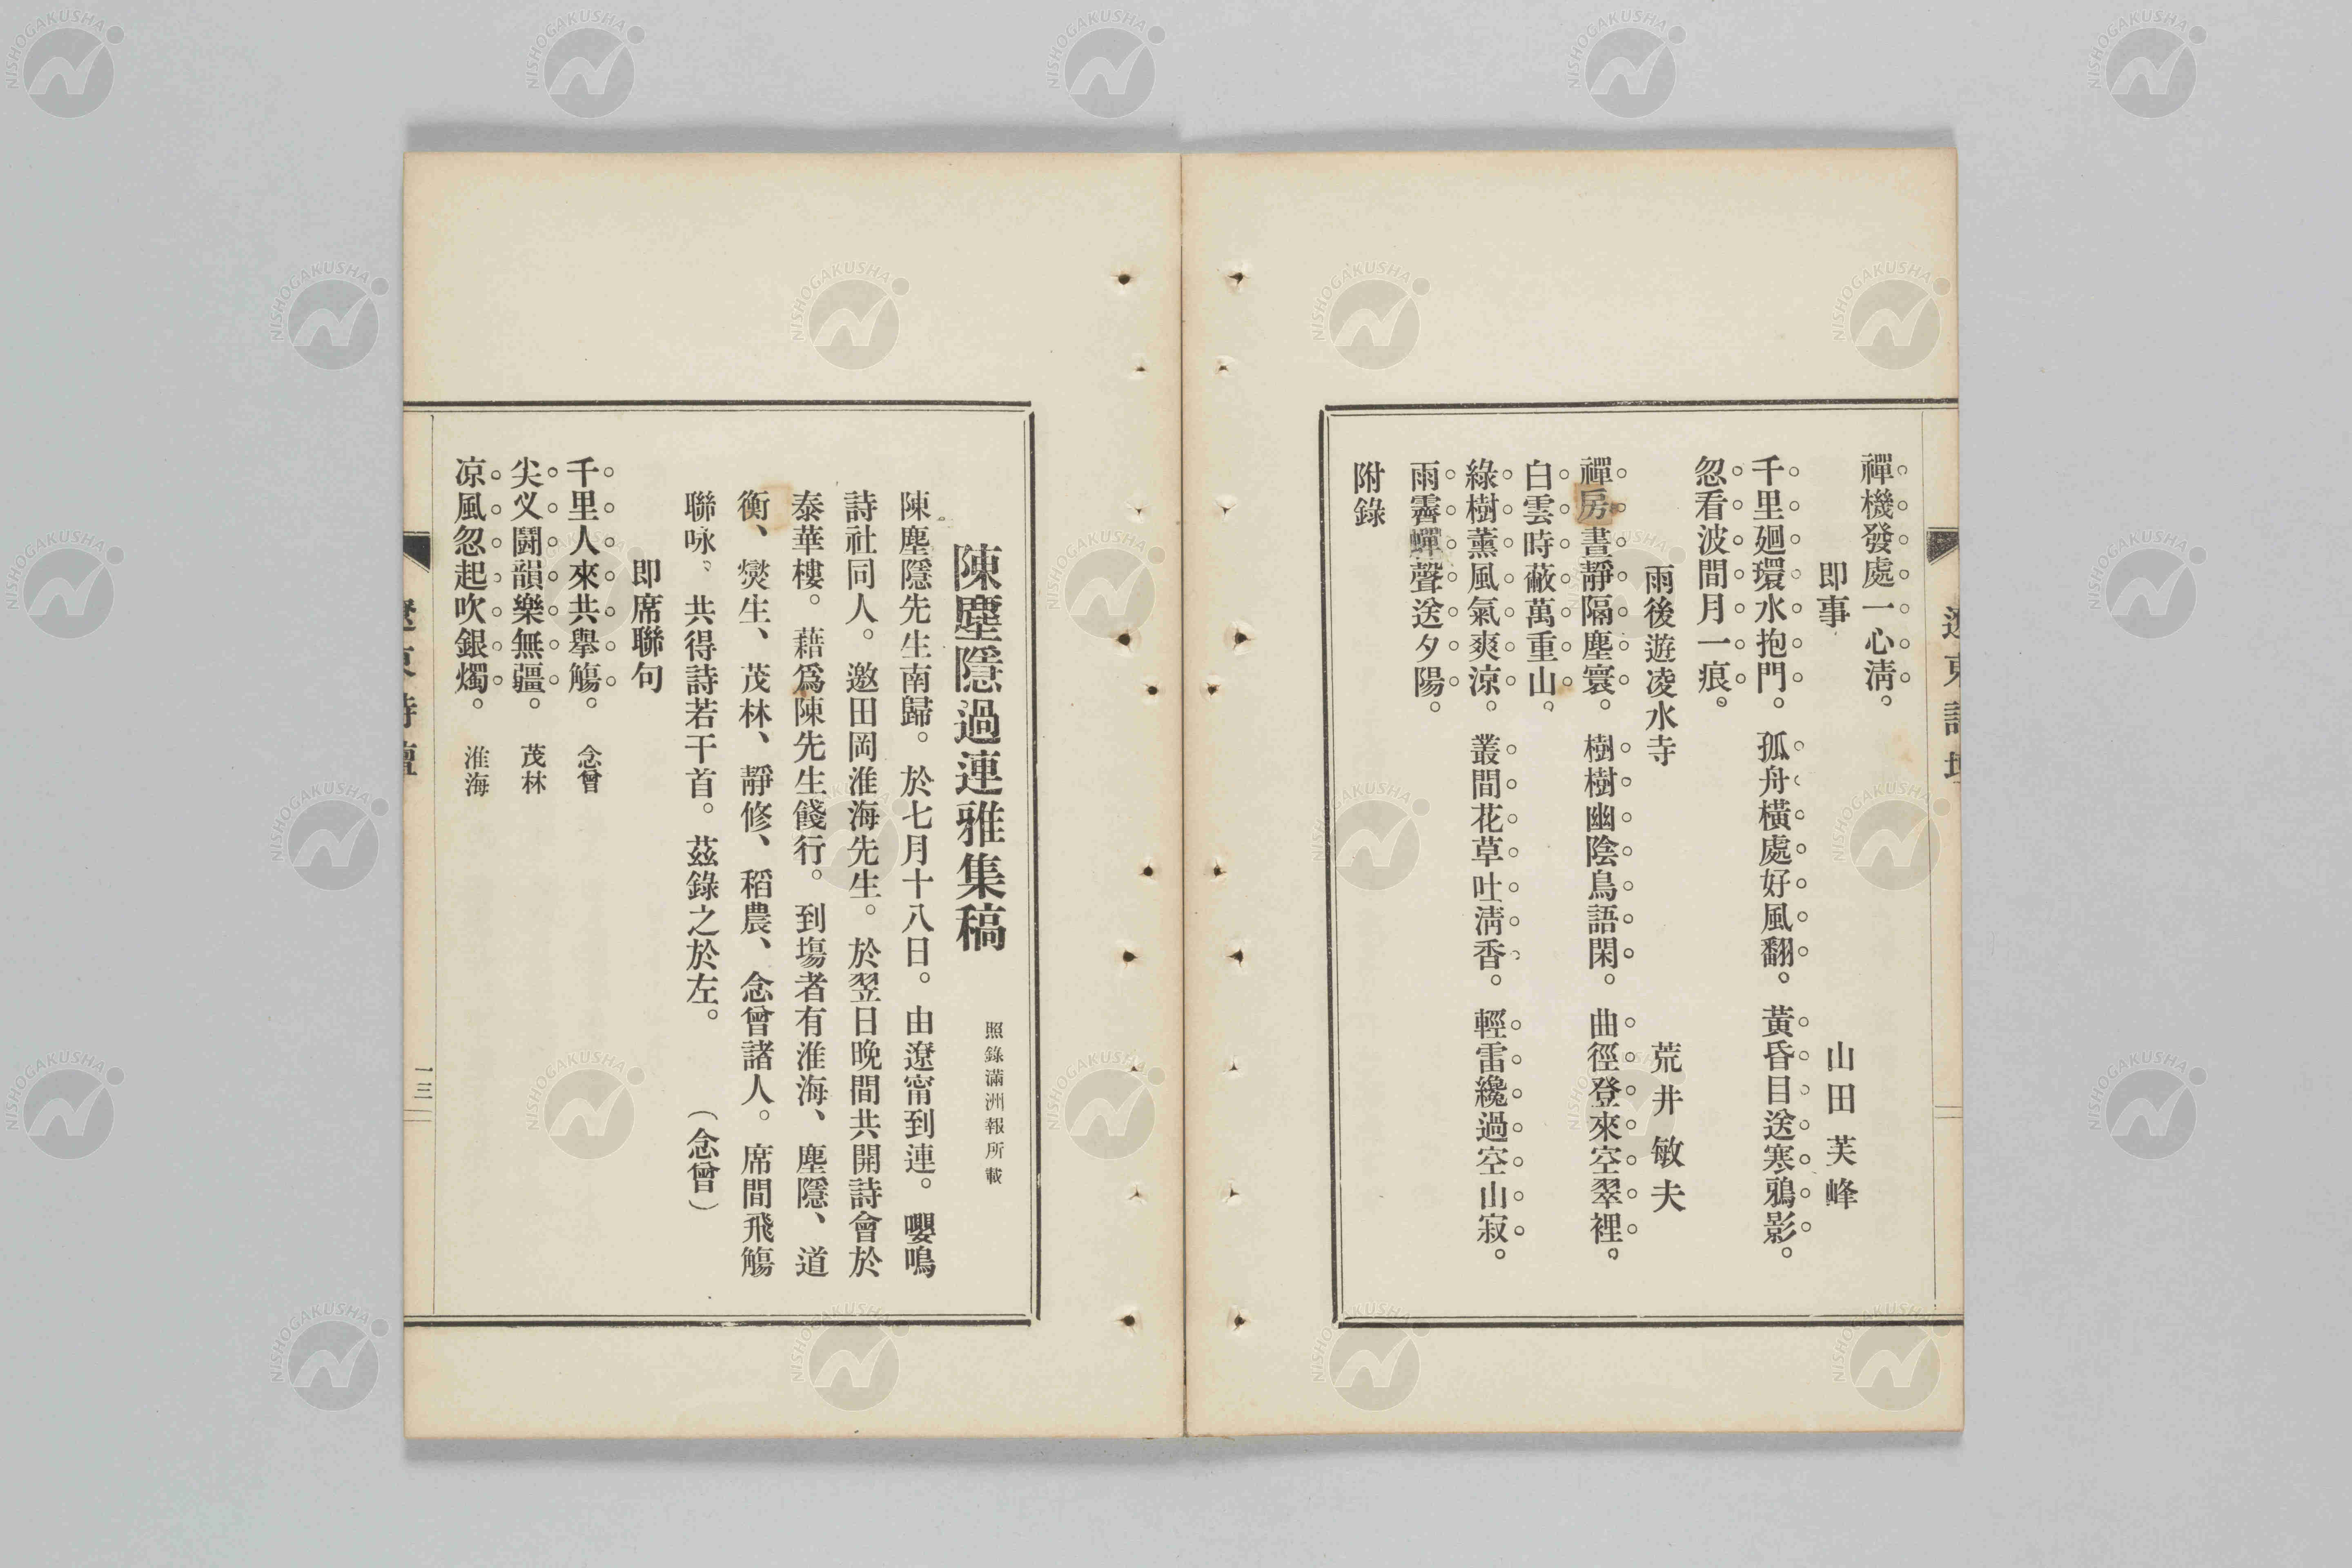 禪機發處一心淸。
卽事　山田芙峰
千里廻環水抱門。孤舟橫處好風翻。黃昏目送寒鴉影。
忽看波間月一痕。
雨後遊凌水寺　荒井敏夫
禪房晝靜隔塵寰。樹樹幽陰鳥語閑。曲徑登來空翠裡。
白雲時蔽萬重山。
綠樹薰風氣爽涼。叢間花草吐淸香。輕雷纔過空山寂。
雨霽蟬聲送夕陽。
附錄
陳塵隱過連雅集稿　照錄滿洲報所載
陳塵隱先生南歸。於七月十八日。由遼甯到連。嚶鳴
詩社同人。邀田岡淮海先生。於翌日晚間共開詩會於
泰華樓。藉爲陳先生餞行。到塲者有淮海、塵隱、道
衡、爕生、茂林、靜修、稻農、念曾諸人。席間飛觴
聯咏。共得詩若干首。茲錄之於左。（念曾）
卽席聯句
千里人來共擧觴。　念曾
尖叉鬪韻樂無疆。　茂林
凉風忽起吹銀燭。　淮海
遼東詩壇
一三
NISHOGAKUSHA